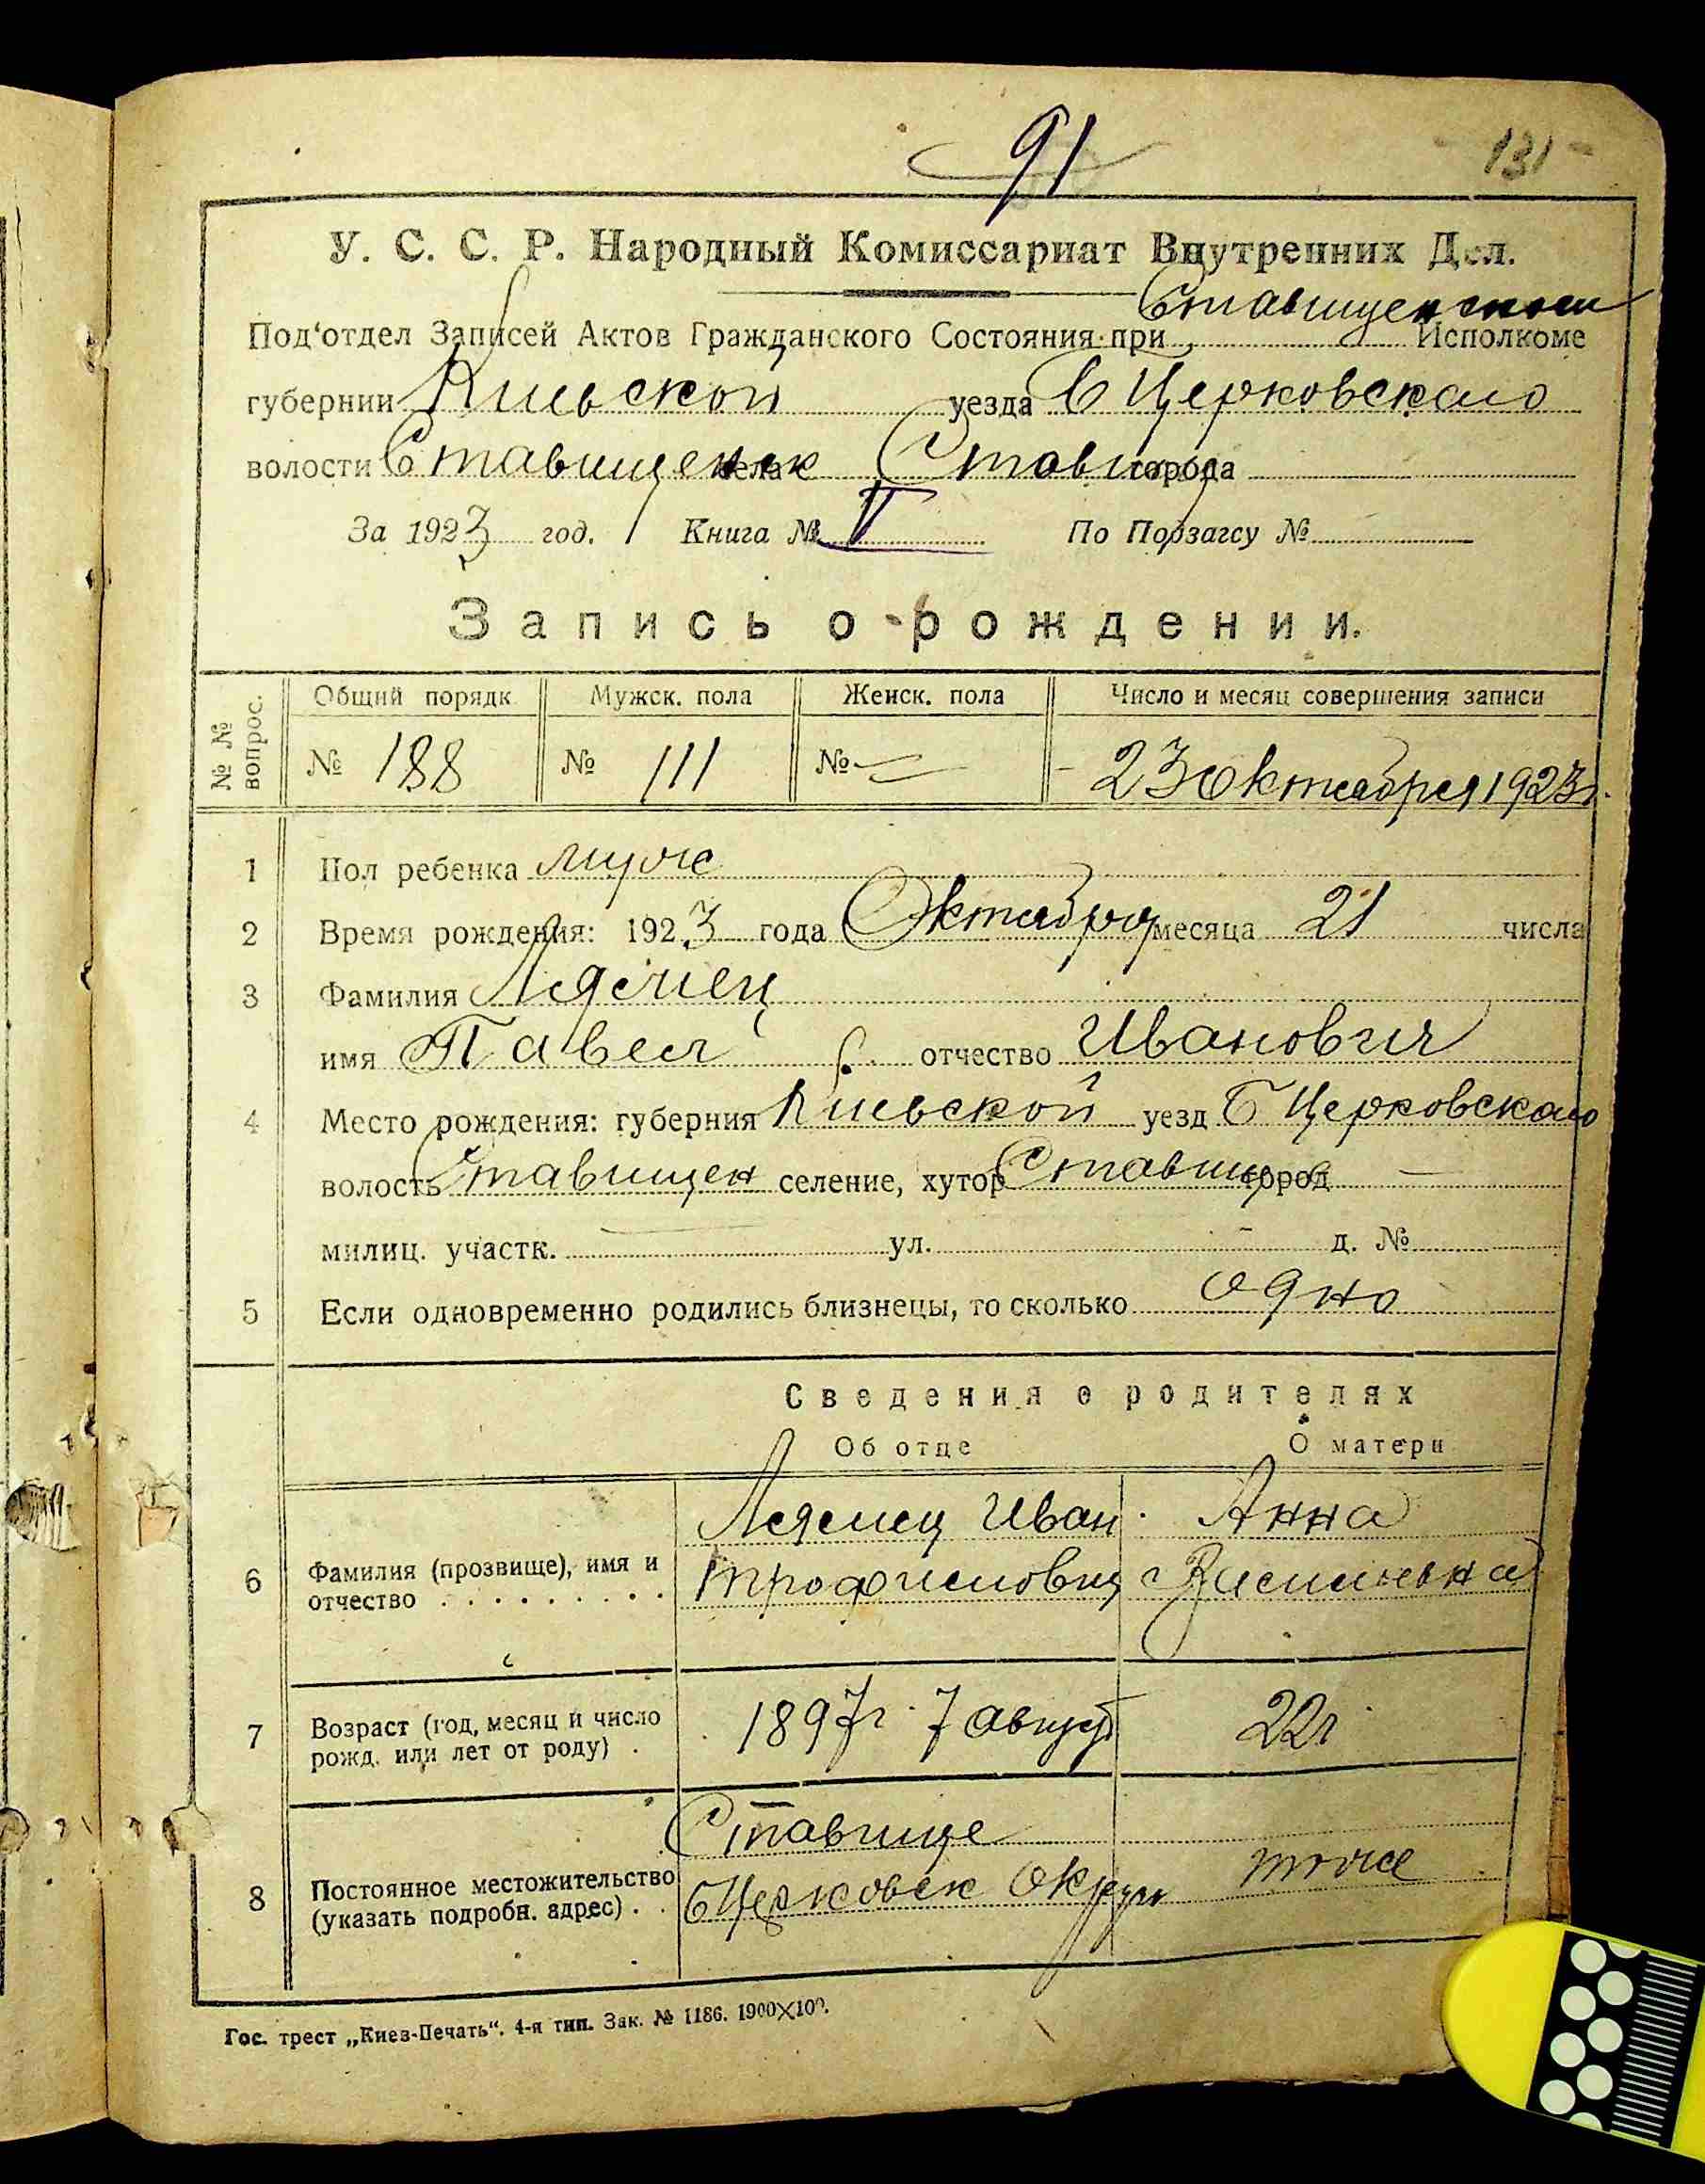 91
131
У. С. С. Р. Народный Комиссариат Внутренних Дел.
Под‘отдел Записей Актов Гражданского Состояния при Ставищенском Исполкоме
губернии Киевской уезда Б Церковского
волости Ставищенск села Ставище города
За 1923 год. Книга № V По Порзагсу №
Запись о рождении.
№ № вопрос. Общий порядк Мужск. пола Женск. пола Число и месяц совершения записи
№ 188 № 111 № — 23 Октября 1923 г.
1 Пол ребенка муж
2 Время рождения: 1923 года Октября месяца 21 числа
3 Фамилия
имя Павел отчество Иванович
4 Место рождения: губерния Киевской уезд Б Церковского
волость Ставищен селение, хутор Ставище город —
милиц. участк. — ул. — д. №
5 Если одновременно родились близнецы, то сколько одно
Сведения о родителях
Об отце О матери
Иван Анна
6 Фамилия (прозвище), имя и отчество Трофимович
7 Возраст (год, месяц и число рожд. или лет от роду) 1897 г 7 август 22 г
Ставище
8 Постоянное местожительство (указать подробн. адрес) БЦерковск Округи тоже
Гос. трест „Киев-Печать“. 4-я тип. Зак. № 1186. 1900×100.